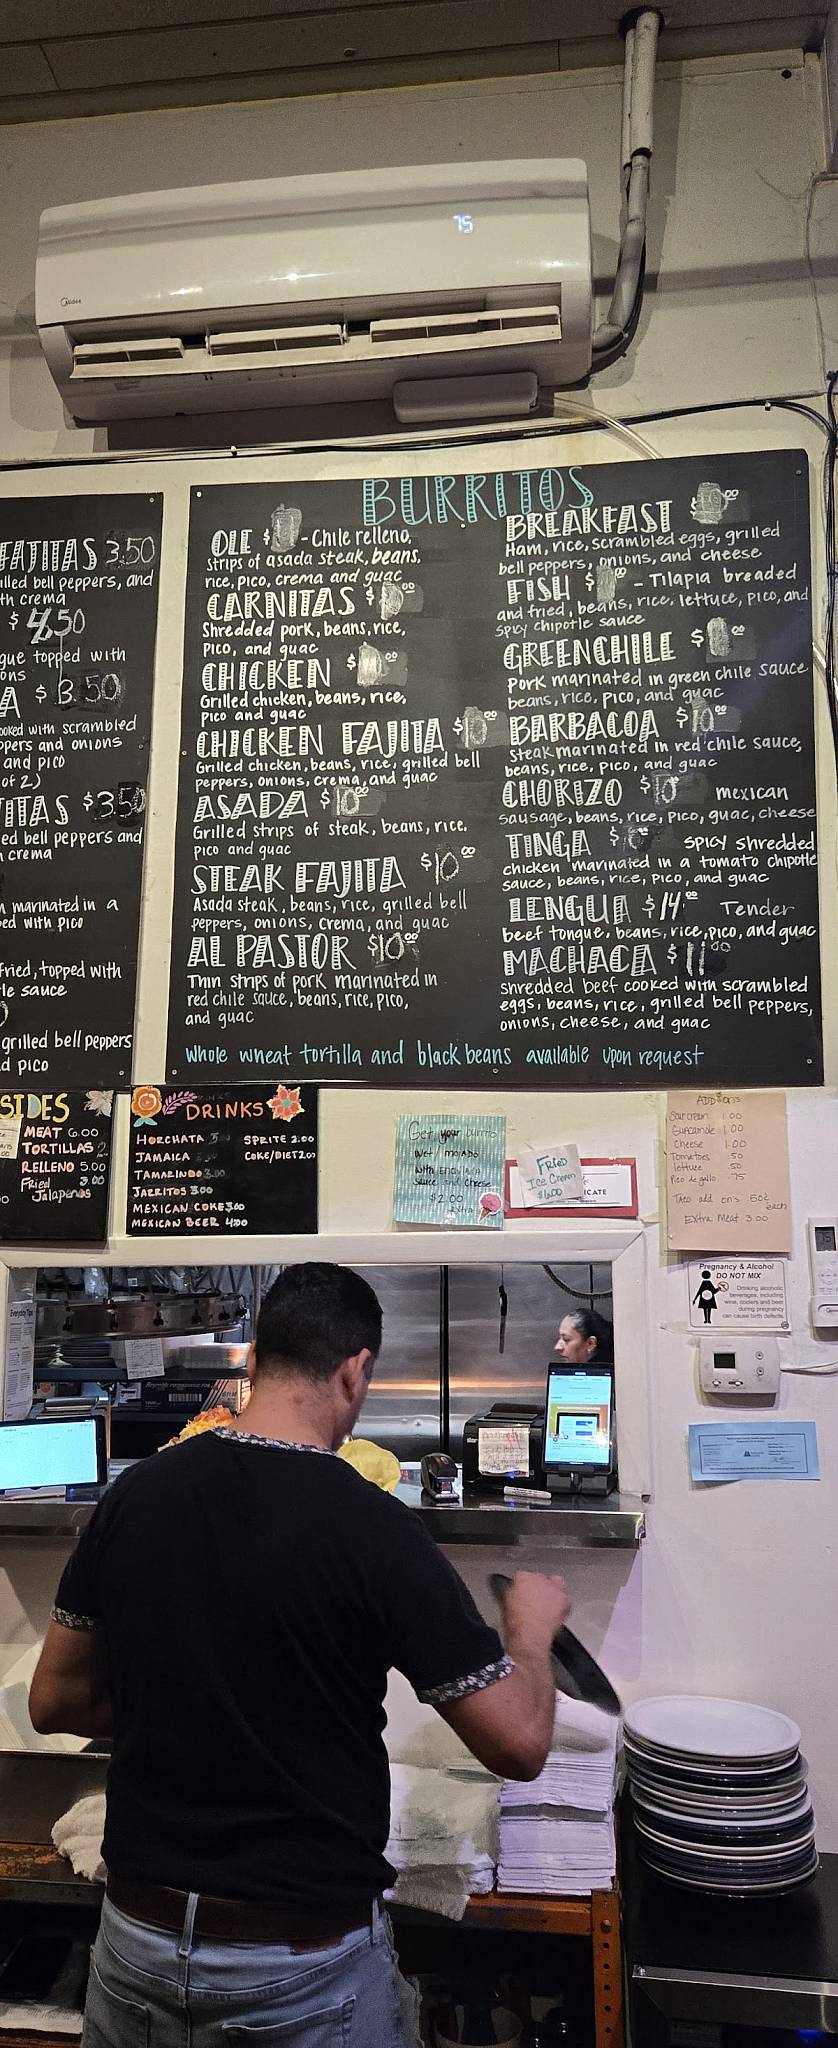 75
Midea
FAJITAS 3.50
illed bell peppers, and
th crema
$ 4.50
gue topped with
ons
A $ 3.50
ooked with scrambled
ppers and onions
and pico
of 2)
ITAS $3.50
ed bell peppers and
crema
n marinated in a
ped with pico
fried, topped with
le sauce
grilled bell peppers
d pico
BURRITOS
OLE $ - Chile relleno,
strips of asada steak, beans,
rice, pico, crema and guac
CARNITAS $
Shredded pork, beans, rice,
pico, and guac
CHICKEN $
Grilled chicken, beans, rice,
pico and guac
CHICKEN FAJITA $10.00
Grilled chicken, beans, rice, grilled bell
peppers, onions, crema, and guac
ASADA $10.00
Grilled strips of steak, beans, rice,
pico and guac
STEAK FAJITA $10.00
Asada steak, beans, rice, grilled bell
peppers, onions, crema, and guac
AL PASTOR $10.00
Thin strips of pork marinated in
red chile sauce, beans, rice, pico,
and guac
BREAKFAST $10.00
Ham, rice, scrambled eggs, grilled
bell peppers, onions, and cheese
FISH $ .00 - Tilapia breaded
and fried, beans, rice, lettuce, pico, and
spicy chipotle sauce
GREENCHILE $ .00
pork marinated in green chile sauce
beans, rice, pico, and guac
BARBACOA $10.00
steak marinated in red chile sauce,
beans, rice, pico, and guac
CHORIZO $10.00 mexican
sausage, beans, rice, pico, guac, cheese
TINGA $ .00 spicy shredded
chicken marinated in a tomato chipotle
sauce, beans, rice, pico, and guac
LENGUA $14.00 Tender
beef tongue, beans, rice, pico, and guac
MACHACA $11.00
shredded beef cooked with scrambled
eggs, beans, rice, grilled bell peppers,
onions, cheese, and guac
whole wheat tortilla and black beans available upon request
SIDES
MEAT 6.00
TORTILLAS
RELLENO 5.00
Fried 3.00
Jalapeños
DRINKS
HORCHATA
JAMAICA
TAMARINDO 3.00
JARRITOS 3.00
MEXICAN COKE 3.00
MEXICAN BEER 4.00
SPRITE 2.00
COKE/DIET 2.00
Get your burrito
wet / mojado
with enchilada
sauce and cheese
$2.00
extra
Fried
Ice Cream
$6.00
ICATE
ADD ONS
Sour cream 1.00
Guacamole 1.00
Cheese 1.00
Tomatoes .50
lettuce .50
Pico de gallo .75
Taco add on's 50¢
each
Extra Meat 3.00
Pregnancy & Alcohol
DO NOT MIX
Drinking alcoholic
beverages, including
wine, coolers and beer
during pregnancy
can cause birth defects.
Everyday Tips